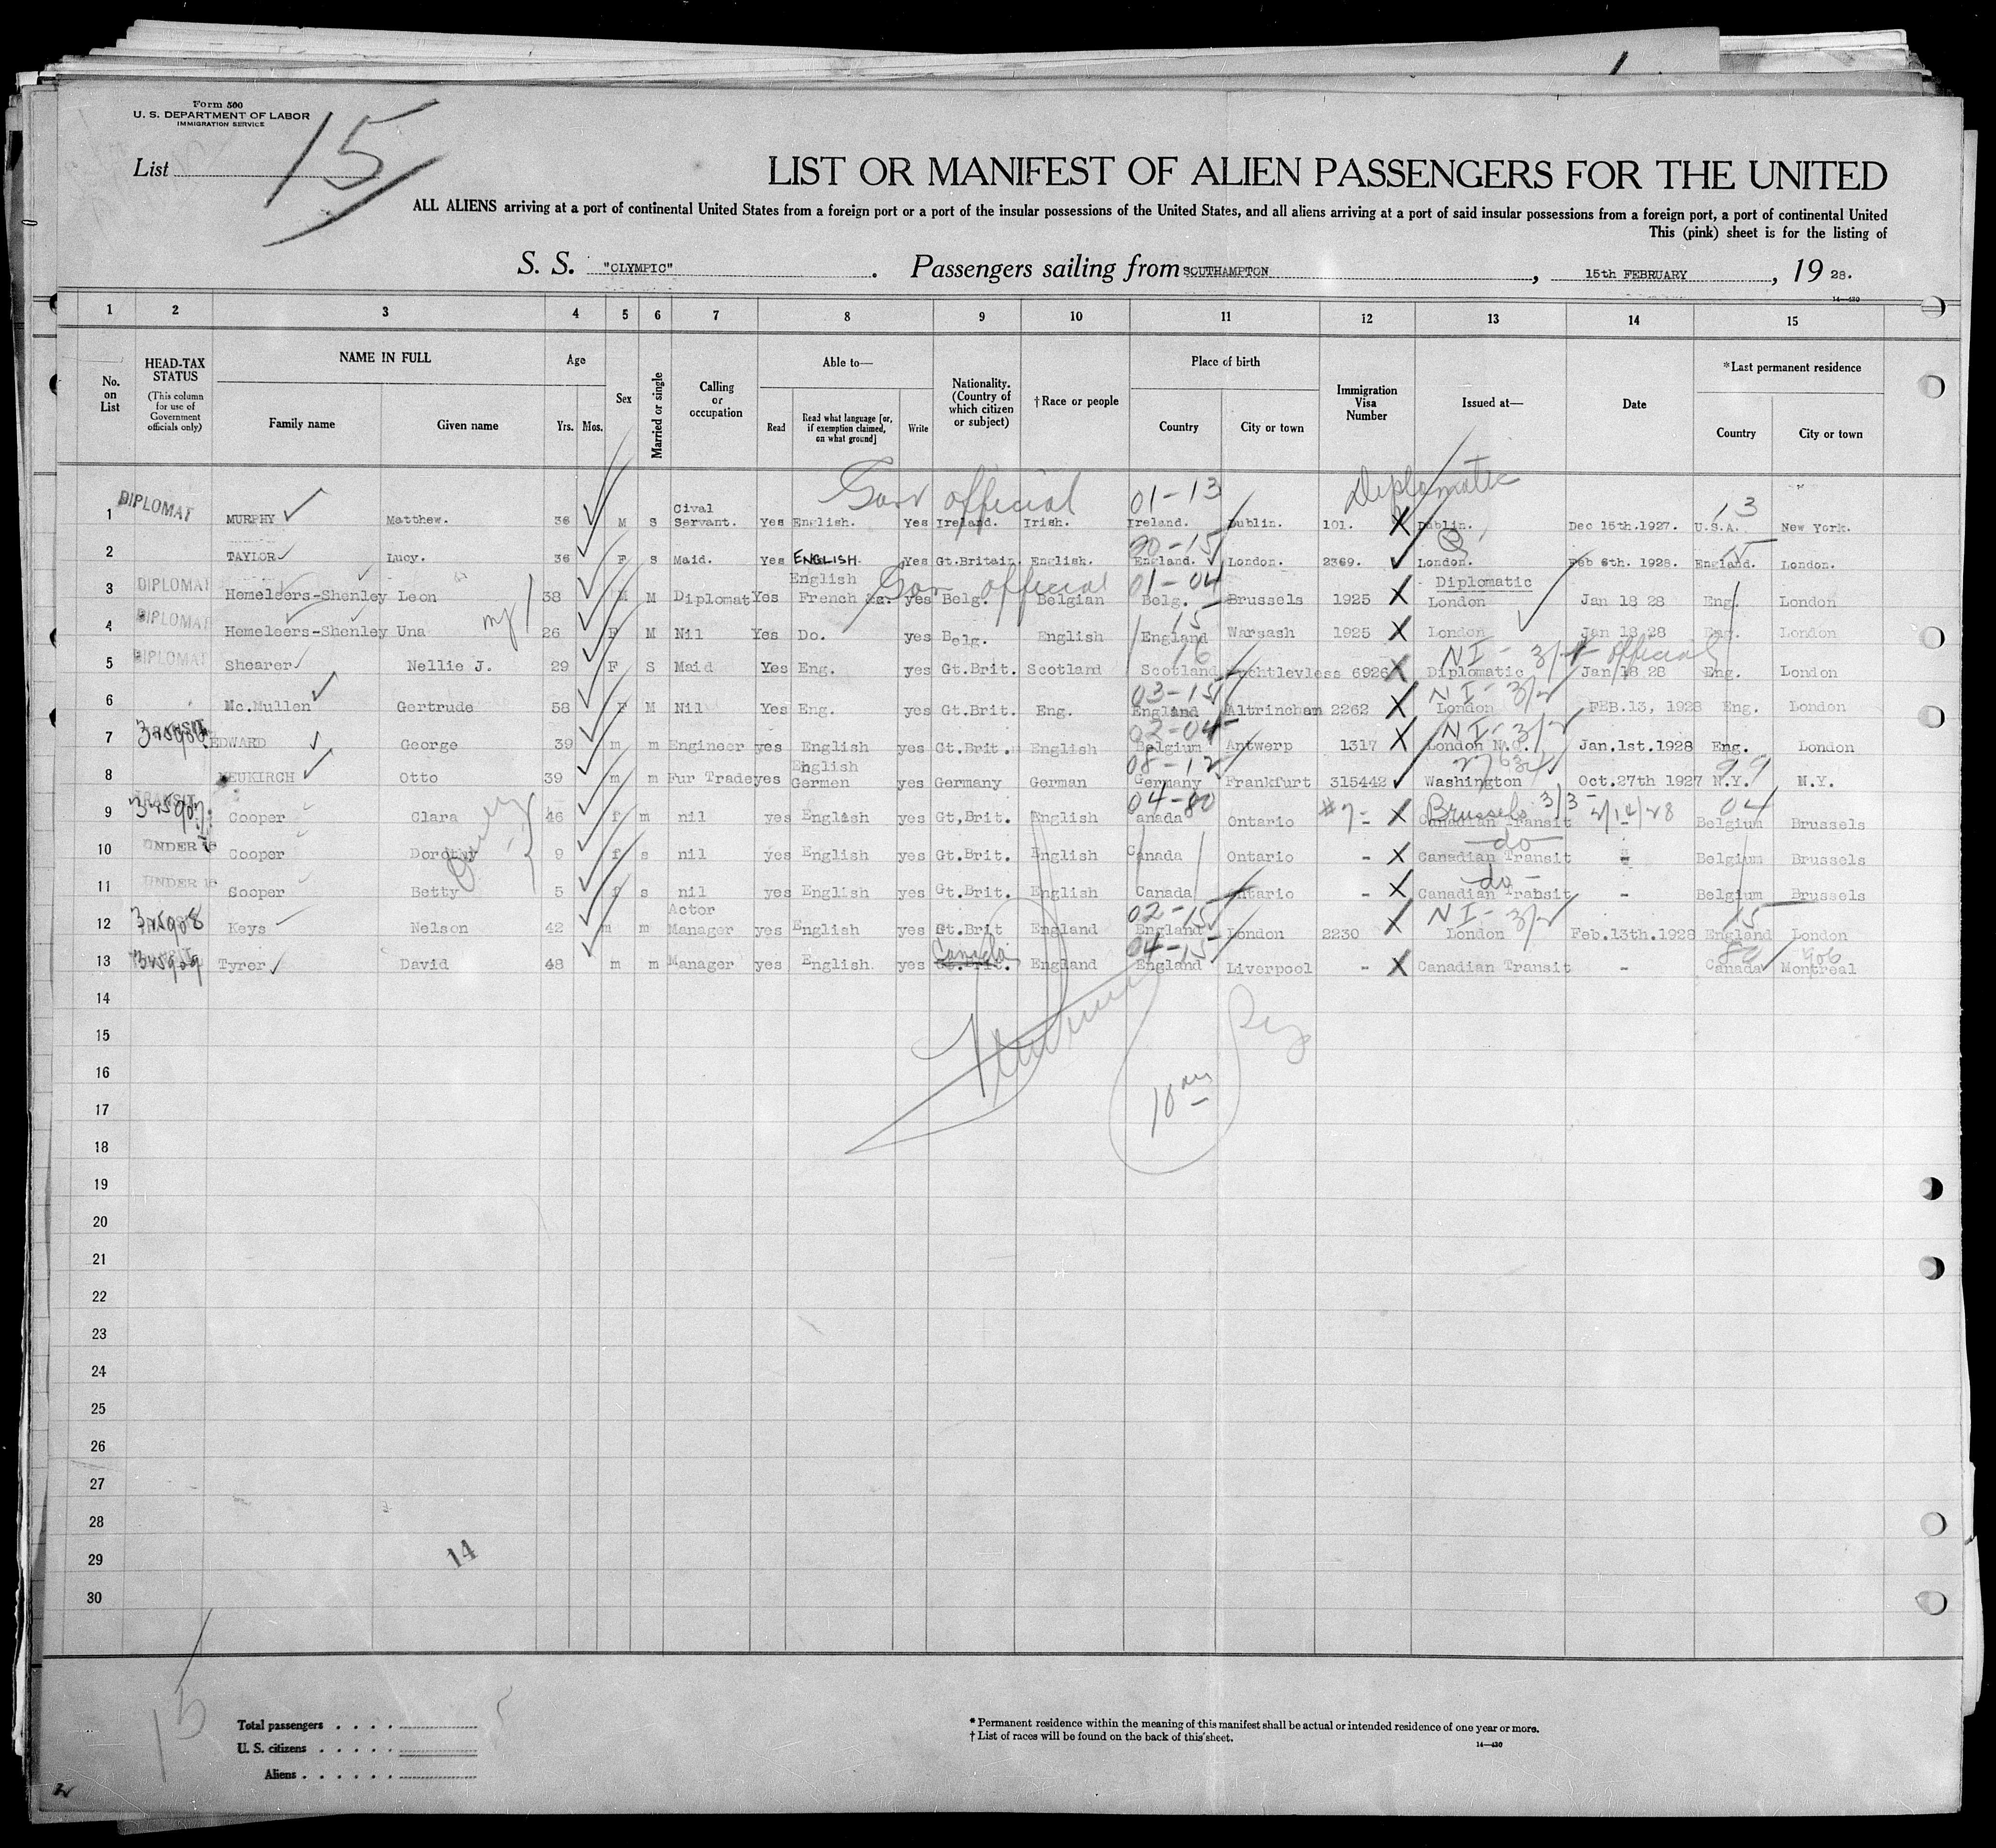 Form 500
U. S. DEPARTMENT OF LABOR
IMMIGRATION SERVICE
List 15
LIST OR MANIFEST OF ALIEN PASSENGERS FOR THE UNITED
ALL ALIENS arriving at a port of continental United States from a foreign port or a port of the insular possessions of the United States, and all aliens arriving at a port of said insular possessions from a foreign port, a port of continental United
This (pink) sheet is for the listing of
S. S. "OLYMPIC" . Passengers sailing from SOUTHAMPTON , 15th FEBRUARY , 19 28.
14—430
1 2 3 4 5 6 7 8 9 10 11 12 13 14 15
No. on List
HEAD-TAX STATUS (This column for use of Government officials only)
NAME IN FULL
Family name Given name
Age
Yrs. Mos.
Sex
Married or single
Calling or occupation
Able to—
Read Read what language [or, if exemption claimed, on what ground] Write
Nationality. (Country of which citizen or subject)
†Race or people
Place of birth
Country City or town
Immigration Visa Number
Issued at—
Date
*Last permanent residence
Country City or town
Gov official 01-13 Diplomatic 3
1 DIPLOMAT MURPHY Matthew. 36 M S Cival Servant. Yes English. Yes Ireland. Irish. Ireland. Dublin. 101. X Dublin. Dec 15th.1927. U.S.A. New York.
20-15 15
2 TAYLOR Lucy. 36 F S Maid. Yes ENGLISH Yes Gt.Britain. English. England. London. 2369. London. Feb 6th. 1928. England. London.
Gov official 01-04 Diplomatic
3 DIPLOMAT Hemeleers-Shenley Leon 38 M M Diplomat Yes English French &c. yes Belg. Belgian Belg. Brussels 1925 X London Jan 18 28 Eng. London
15
4 DIPLOMAT Hemeleers-Shenley Una 26 F M Nil Yes Do. yes Belg. English England Warsash 1925 X London Jan 18 28 Eng. London
16 NI- 3/1 official
5 DIPLOMAT Shearer Nellie J. 29 F S Maid Yes Eng. yes Gt.Brit. Scotland Scotland 6926 X Diplomatic Jan 18 28 Eng. London
03-15 NI- 3/2
6 Mc.Mullen Gertrude 58 F M Nil Yes Eng. yes Gt.Brit. Eng. England Altrincham 2262 X London FEB.13, 1928 Eng. London
02-04 NI- 3/2
7 TRANSIT EDWARD George 39 m m Engineer yes English yes Gt.Brit. English Belgium Antwerp 1317 X London N.Q. Jan.1st.1928 Eng. London
08-12 99
8 NEUKIRCH Otto 39 m m Fur Trade yes English Germen yes Germany German Germany Frankfurt 315442 Washington Oct.27th 1927 N.Y. N.Y.
04-80 Brussels 3/3 04
9 TRANSIT 345907 Cooper Clara 46 f m nil yes English yes Gt,Brit. English anada Ontario #7- X Canadian Transit 2/14/28 Belgium Brussels
-do-
10 UNDER 16 Cooper Dorothy 9 f s nil yes English yes Gt.Brit. English Canada Ontario - X Canadian Transit - Belgium Brussels
-do-
11 UNDER 16 Sooper Betty 5 f s nil yes English yes Gt.Brit. English Canada Ontario - X Canadian Trabsit - Belgium Brussels
02-15 NI- 3/2 15
12 345908 Keys Nelson 42 m m Actor Manager yes English yes Gt.Brit England England London 2230 X London Feb.13th.1928 England London
Canada 04-15 80 906
13 345909 Tyrer David 48 m m Manager yes English. yes Gt.Brit. England England Liverpool - X Canadian Transit - Canada Montreal
14
15
16
17
18
19
20
21
22
23
24
25
26
27
28
29
30
14
15
Total passengers
U. S. citizens
Aliens
* Permanent residence within the meaning of this manifest shall be actual or intended residence of one year or more.
† List of races will be found on the back of this sheet.
14—430